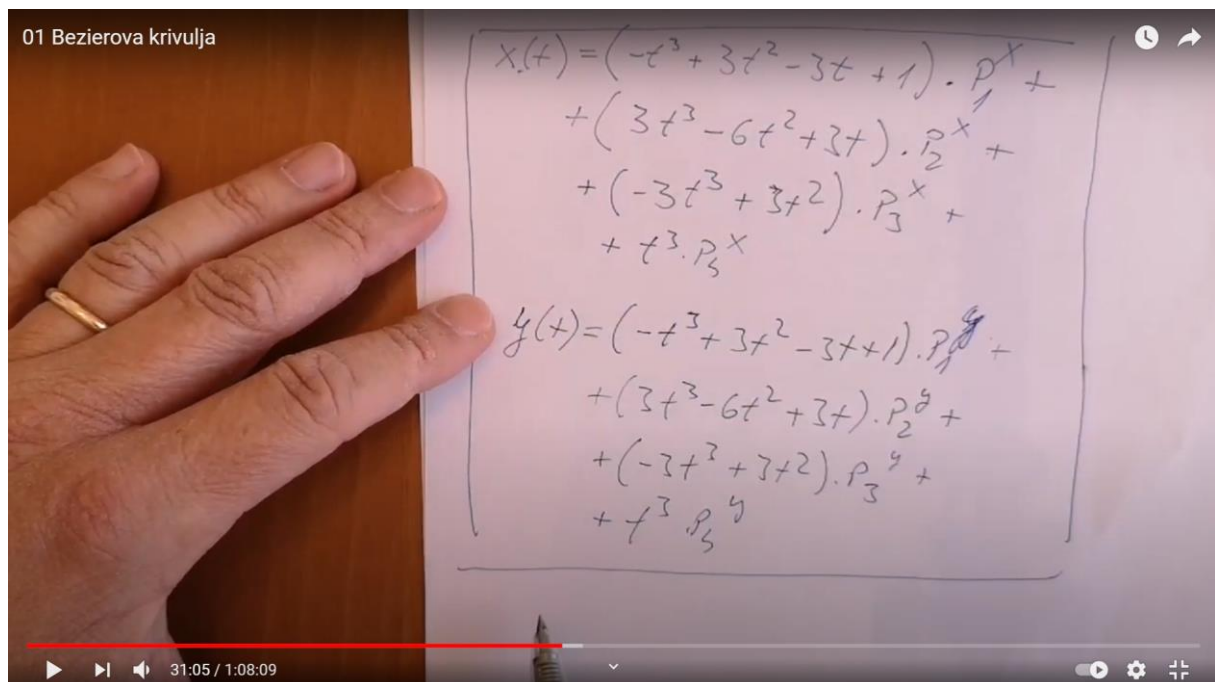 01 Bezierova krivulja
x(t) = (-t³ + 3t² - 3t + 1) · P₁ˣ +
+ (3t³ - 6t² + 3t) · P₂ˣ +
+ (-3t³ + 3t²) · P₃ˣ +
+ t³ · P₄ˣ
y(t) = (-t³ + 3t² - 3t + 1) · P₁ʸ +
+ (3t³ - 6t² + 3t) · P₂ʸ +
+ (-3t³ + 3t2) · P₃ʸ +
+ t³ · P₄ʸ
31:05 / 1:08:09